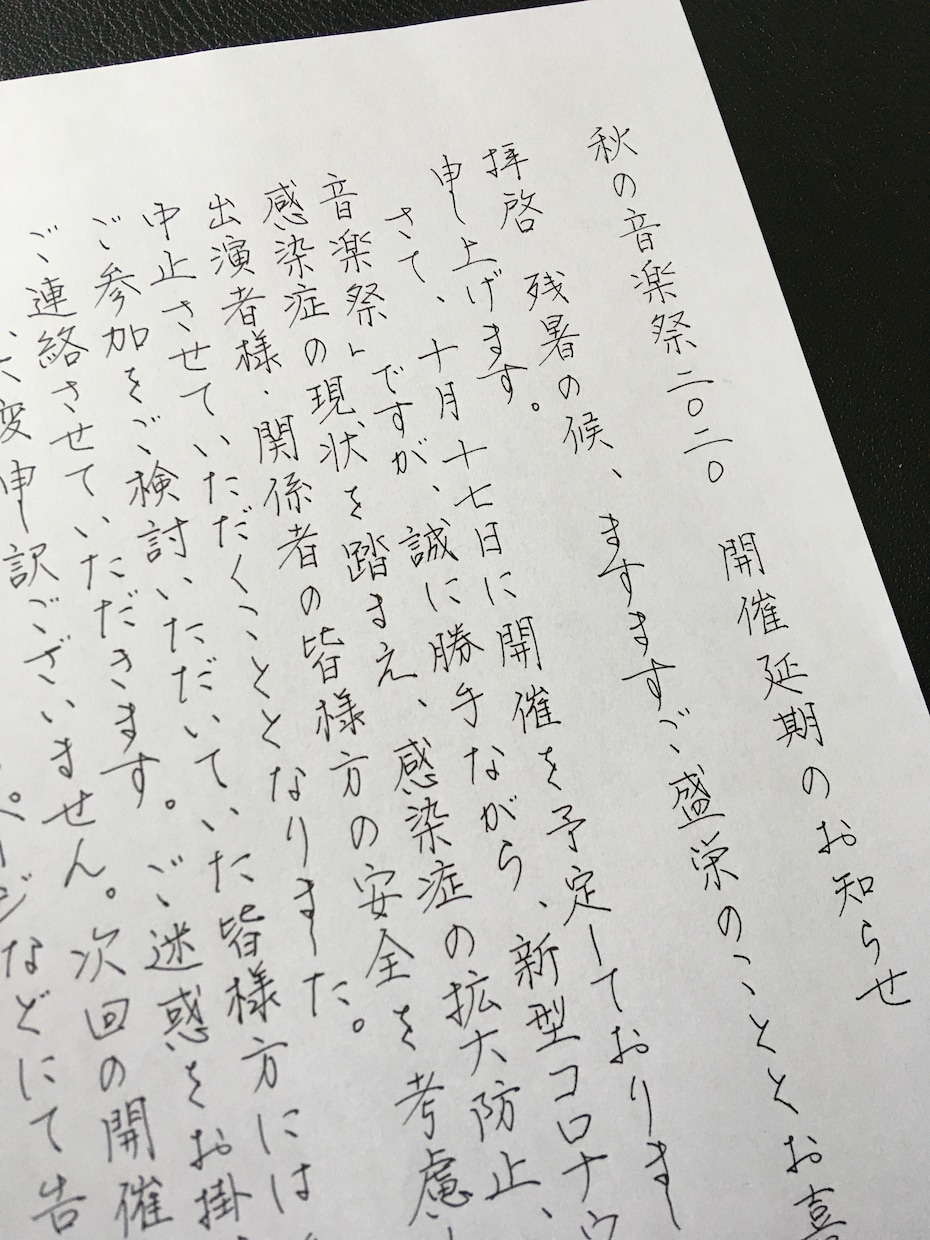 秋の音楽祭二〇二〇　開催延期のお知らせ
拝啓　残暑の候、ますますご盛栄のこととお喜
申し上げます。
さて、十月十七日に開催を予定しておりまし
音楽祭」ですが、誠に勝手ながら、新型コロナウ
感染症の現状を踏まえ、感染症の拡大防止、
出演者様・関係者の皆様方の安全を考慮し
中止させていただくこととなりました。
ご参加をご検討いただいていた皆様方には
ご連絡させていただきます。ご迷惑をお掛
変申し訳ございません。次回の開催
ページなどにて告